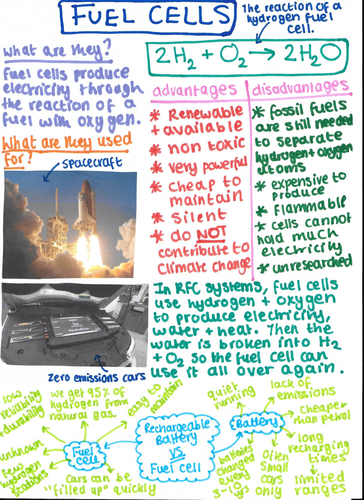 FUEL CELLS
The reaction of a
hydrogen fuel
cell.
2H2 + O2 → 2H2O
What are they?
Fuel cells produce
electricity through
the reaction of a
fuel with oxygen.
What are they used
for?
spacecraft
zero emissions cars
advantages
* Renewable
+ available
* non toxic
* very powerful
* cheap to
maintain
* silent
* do NOT
contribute to
climate change
disadvantages
* fossil fuels
are still needed
to separate
hydrogen + oxygen
atoms
* expensive to
produce
* flammable
* cells cannot
hold much
electricity
* unresearched
In RFC systems, fuel cells
use hydrogen + oxygen
to produce electricity,
water + heat. Then the
water is broken into H2
+ O2 so the fuel cell can
use it all over again.
Rechargeable
Battery
VS
Fuel cell
Fuel
cell
low
reliability
+ durability
we get 95% of
hydrogen from
natural gas.
easy to
maintain
unknown
few
hydrogen
stations
Cars can be
"filled up" quickly
Battery
quiet
running
lack of
emissions
cheaper
than petrol
long
recharging
times
limited
ranges
often
small
cars
only
batteries
changed
every
3-10 yrs